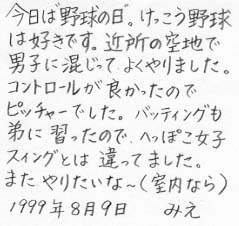 今日は"野球の日"。けっこう野球
は好きです。近所の空地で
男子に混じって よくやりました。
コントロールが良かったので
ピッチャーでした。バッティングも
弟に習ったので、へっぽこ女子
スイングとは 違ってました。
また やりたいな~(室内なら)
1999年8月9日 みえ